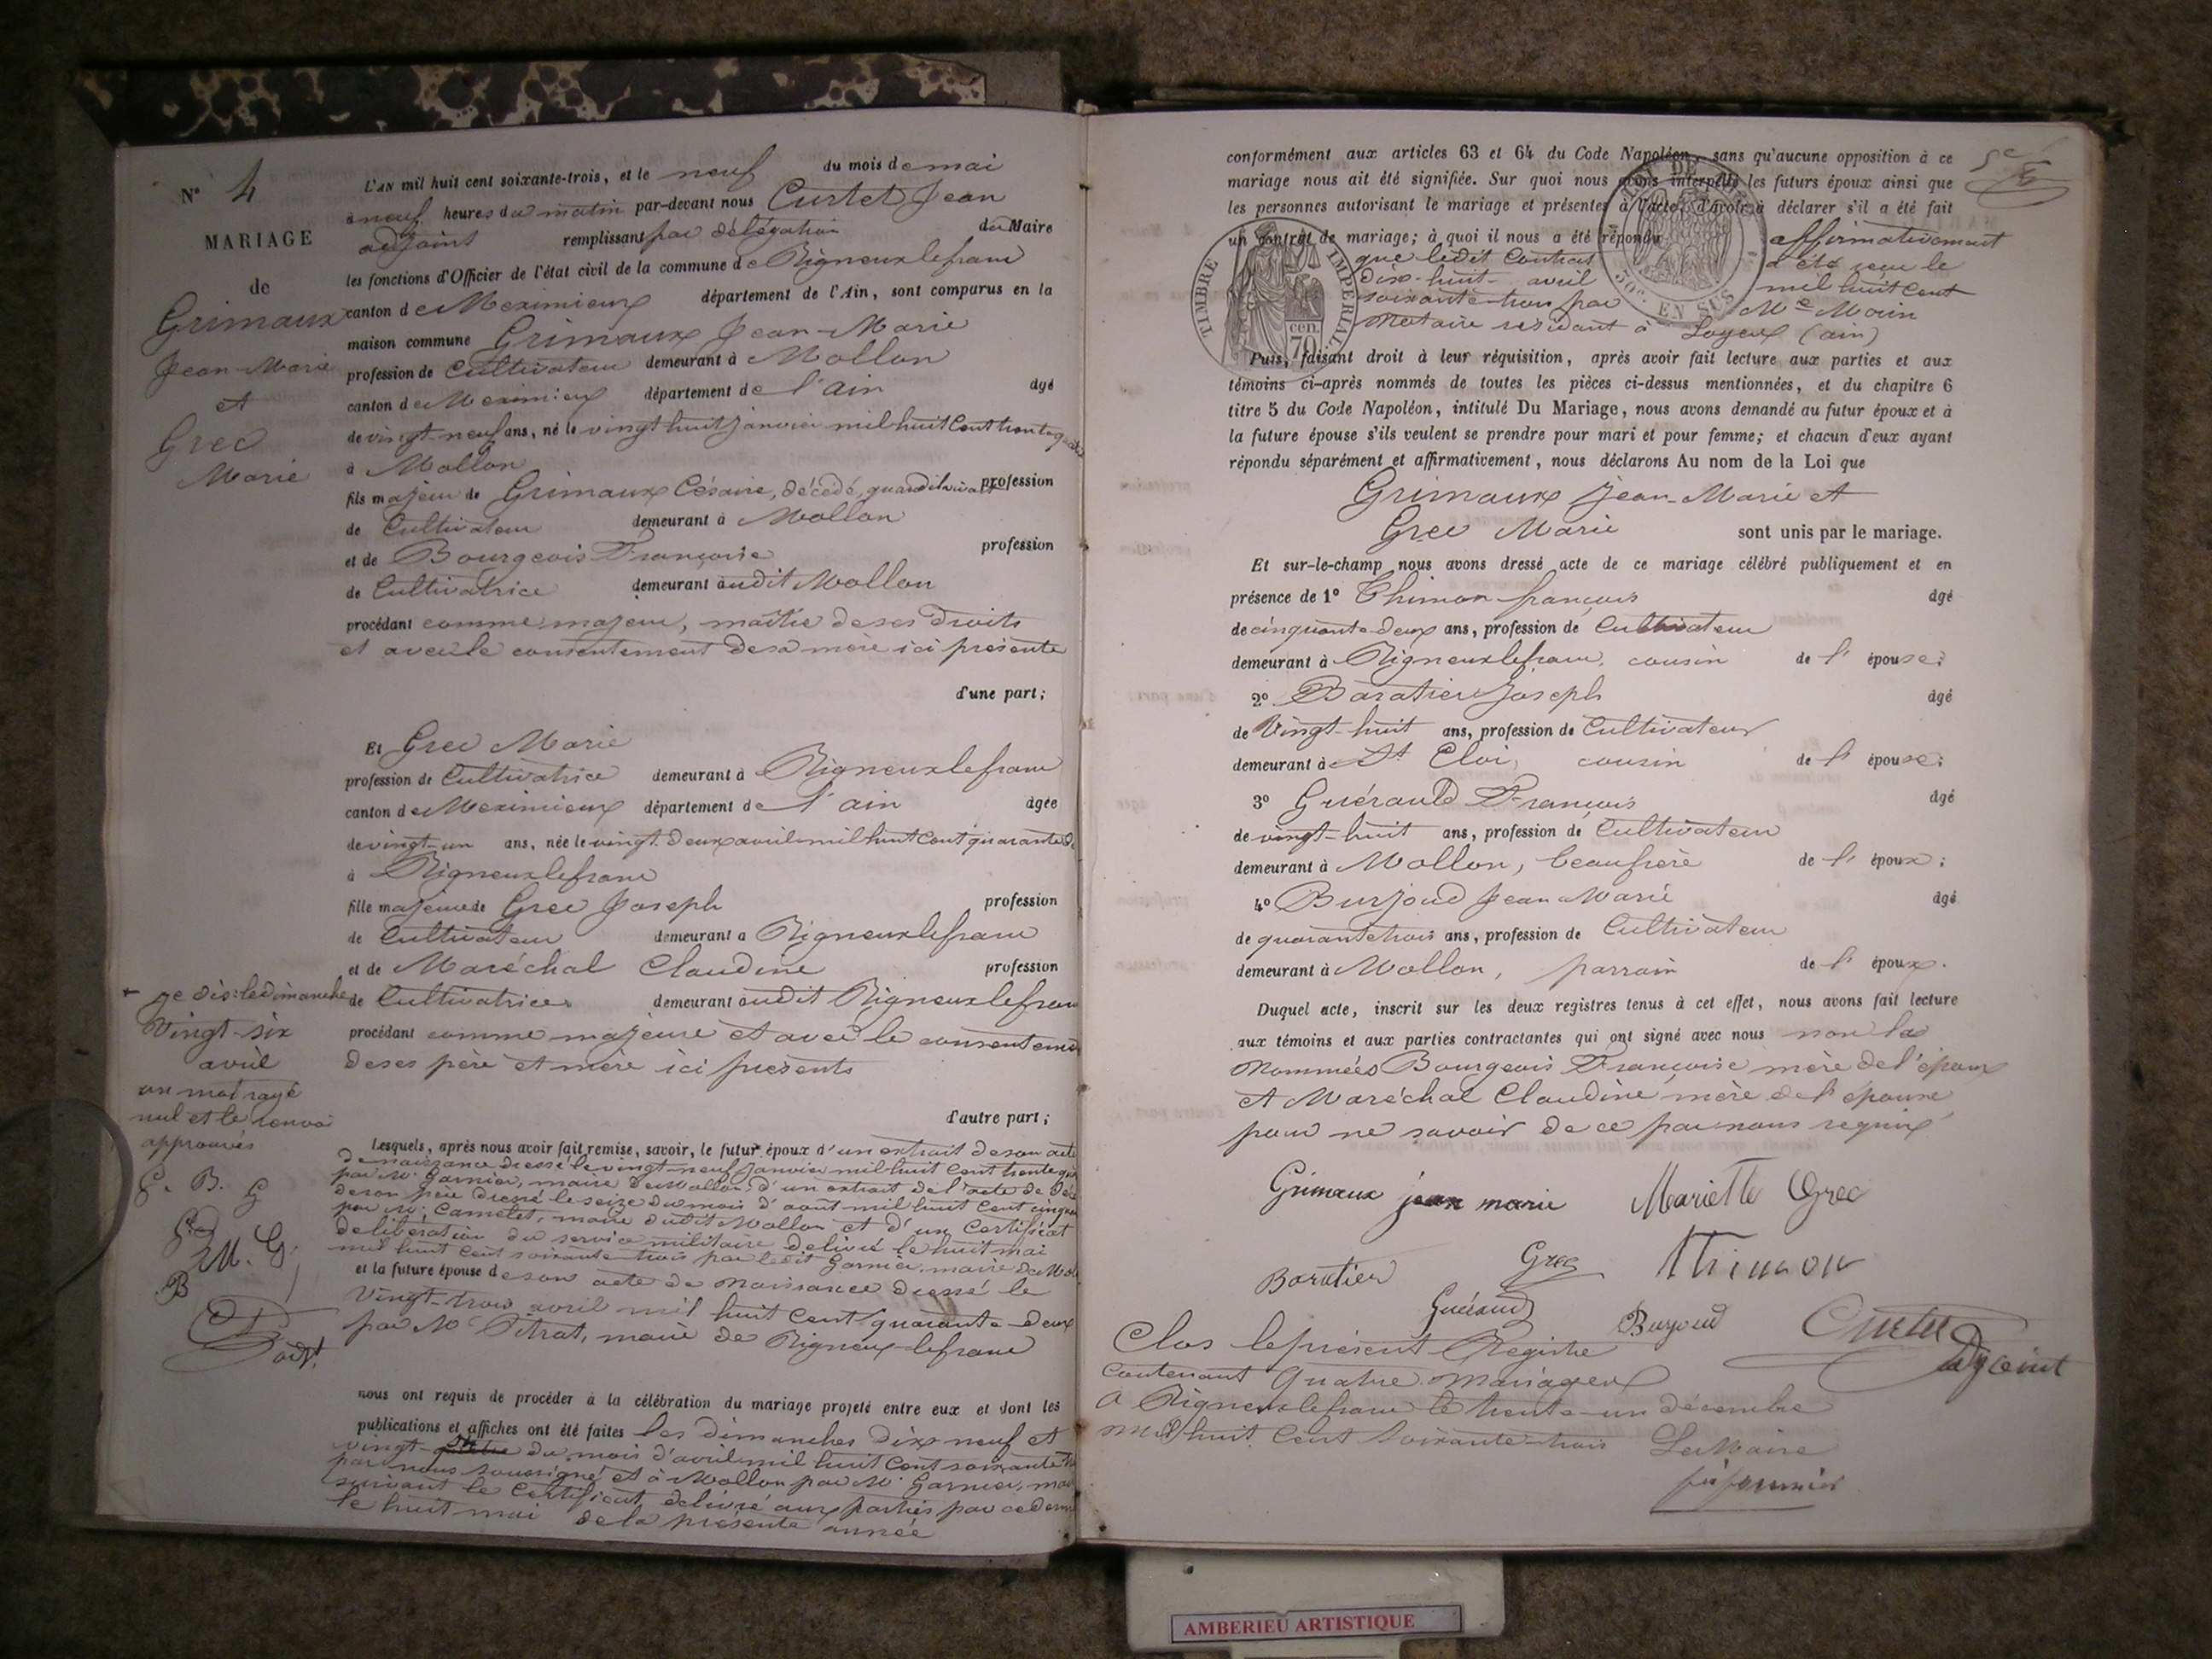 N° 4
MARIAGE
de
Grimaux
Jean-Marie
et
Grec
Marie
L'AN mil huit cent soixante-trois, et le neuf du mois de mai
à neuf heures du matin par-devant nous Curtet Jean
adjoint remplissant par délégation du Maire
les fonctions d'Officier de l'état civil de la commune de Rigneuxlefranc
canton de Meximieux département de l'Ain, sont comparus en la
maison commune Grimaux Jean-Marie
profession de Cultivateur demeurant à Mollon
canton de Meximieux département de l'ain âgé
de vingt-neuf ans, né le vingt huit janvier mil huit cent trente quatre
à Mollon
fils majeur de Grimaux Césaire, décédé, quand il vivait profession
de Cultivateur demeurant à Mollon
et de Bourgeois Françoise profession
de Cultivatrice demeurant audit Mollon
procédant comme majeur, maître de ses droits
et avec le consentement de sa mère ici présente
d'une part;
Et Grec Marie
profession de Cultivatrice demeurant à Rigneuxlefranc
canton de Meximieux département de l'ain âgée
de vingt-un ans, née le vingt-deux avril mil huit cent quarante d
à Rigneuxlefranc
fille majeure de Grec Joseph profession
de Cultivateur demeurant a Rigneuxlefranc
et de Maréchal Claudine profession
de Cultivatrice demeurant audit Rigneuxlefranc
procédant comme majeure et avec le consenteme
de ses père et mère ici présents
d'autre part;
Lesquels, après nous avoir fait remise, savoir, le futur époux d'un extrait de son acte
de naissance dressé le vingt-neuf janvier mil huit cent trente qua
par Mr Garnier, maire de Mollon, d'un extrait de l'acte de déc
de son père dressé le seize du mois d'août mil huit cent cinqua
par Mr Camelet, maire dudit Mollon et d'un Certificat
de libération du service militaire delivré le huit mai
mil huit cent soixante-trois par ledit Garnier, maire de Mol
et la future épouse de son acte de Naissance dressé le
Vingt-trois avril mil huit cent quarante-deux
par Mr Pitrat, maire de Rigneux-lefranc
nous ont requis de procéder à la célébration du mariage projeté entre eux et dont les
publications et affiches ont été faites les dimanches dix neuf et
vingt-quatre du mois d'avril mil huit cent soixante t
par nous soussigné et à Mollon par Mr Garnier, mai
suivant le Certificat delivré aux parties par ce dern
le huit mai de la présente année
+ je dis: le dimanche
Vingt-six
avril
un mot rayé
nul et le renvoi
approuvés
G. B. G
M. G
B
adjt.
conformément aux articles 63 et 64 du Code Napoléon, sans qu'aucune opposition à ce
mariage nous ait été signifiée. Sur quoi nous avons interpellé les futurs époux ainsi que
les personnes autorisant le mariage et présentes à l'acte, d'avoir à déclarer s'il a été fait
un contrat de mariage; à quoi il nous a été répondu affirmativement
que ledit Contrat a été reçu le
dix-huit avril mil huit cent
soixante-trois par Me Morin
Notaire résidant à Loyes (ain)
TIMBRE IMPERIAL
cen.
70
50c. EN SUS
Puis, faisant droit à leur réquisition, après avoir fait lecture aux parties et aux
témoins ci-après nommés de toutes les pièces ci-dessus mentionnées, et du chapitre 6
titre 5 du Code Napoléon, intitulé Du Mariage, nous avons demandé au futur époux et à
la future épouse s'ils veulent se prendre pour mari et pour femme; et chacun d'eux ayant
répondu séparément et affirmativement, nous déclarons Au nom de la Loi que
Grimaux Jean-Marie et
Grec Marie sont unis par le mariage.
Et sur-le-champ nous avons dressé acte de ce mariage célébré publiquement et en
présence de 1° Thimon françois âgé
de cinquante-deux ans, profession de Cultivateur
demeurant à Rigneuxlefranc, cousin de l'épouse;
2° Baratier Joseph âgé
de Vingt-huit ans, profession de Cultivateur
demeurant à St Eloi, cousin de l'épouse;
3° Guérauld François âgé
de vingt-huit ans, profession de Cultivateur
demeurant à Mollon, beaufrère de l'époux;
4° Burjoud Jean Marie âgé
de quarante trois ans, profession de Cultivateur
demeurant à Mollon, parrain de l'époux.
Duquel acte, inscrit sur les deux registres tenus à cet effet, nous avons fait lecture
aux témoins et aux parties contractantes qui ont signé avec nous non les
Nommées Bourgeois Françoise mère de l'époux
et Maréchal Claudine mère de l'épouse
pour ne savoir de ce par nous requis
Grimaux jean marie Mariette Grec
Baratier Grec Thimon
Guéraud Burjoud Curtet
adjoint
Clos le présent Registre
Contenant Quatre mariages
A Rigneuxlefranc le trente-un décembre
mil huit cent soixante-trois Le Maire
AMBERIEU ARTISTIQUE